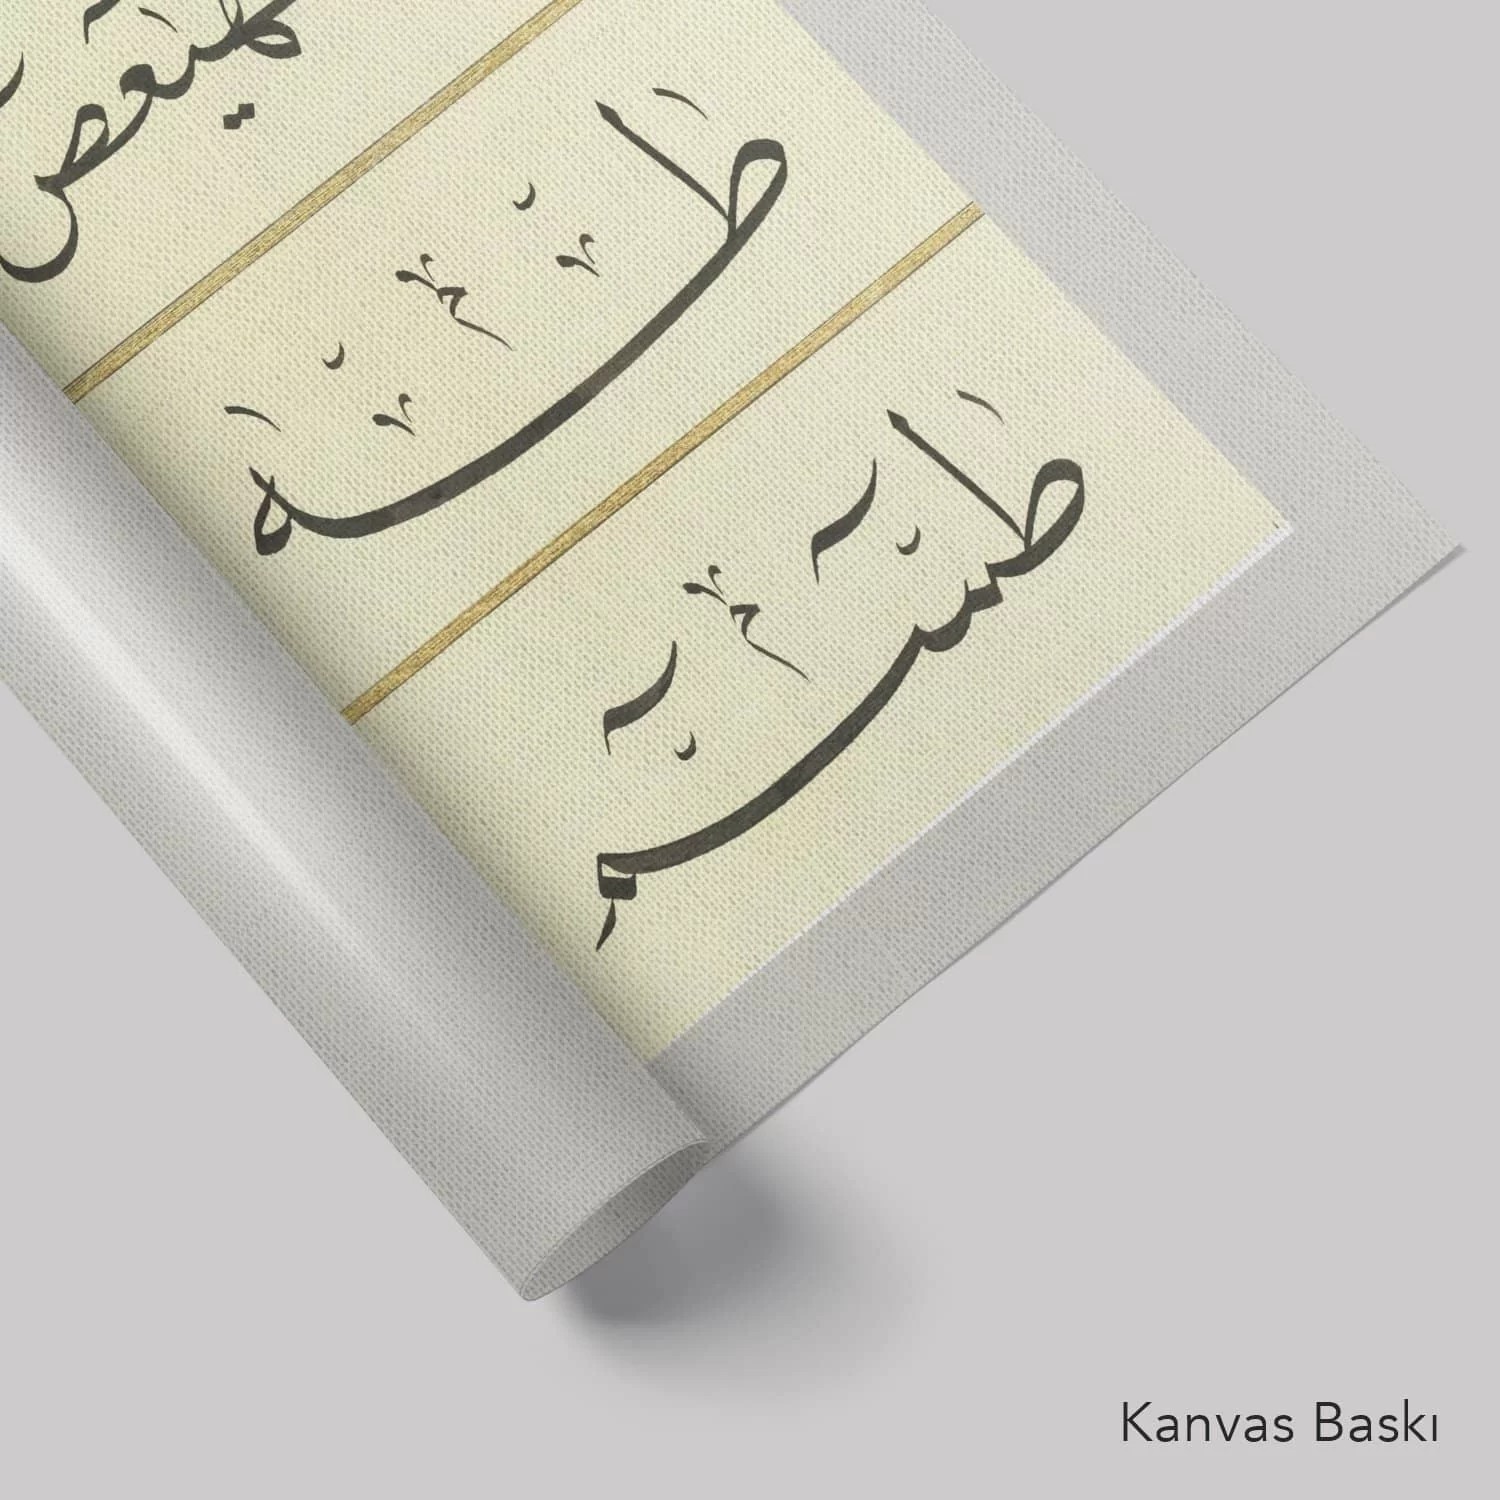 كهيعص
طه
طسم
Kanvas Baskı